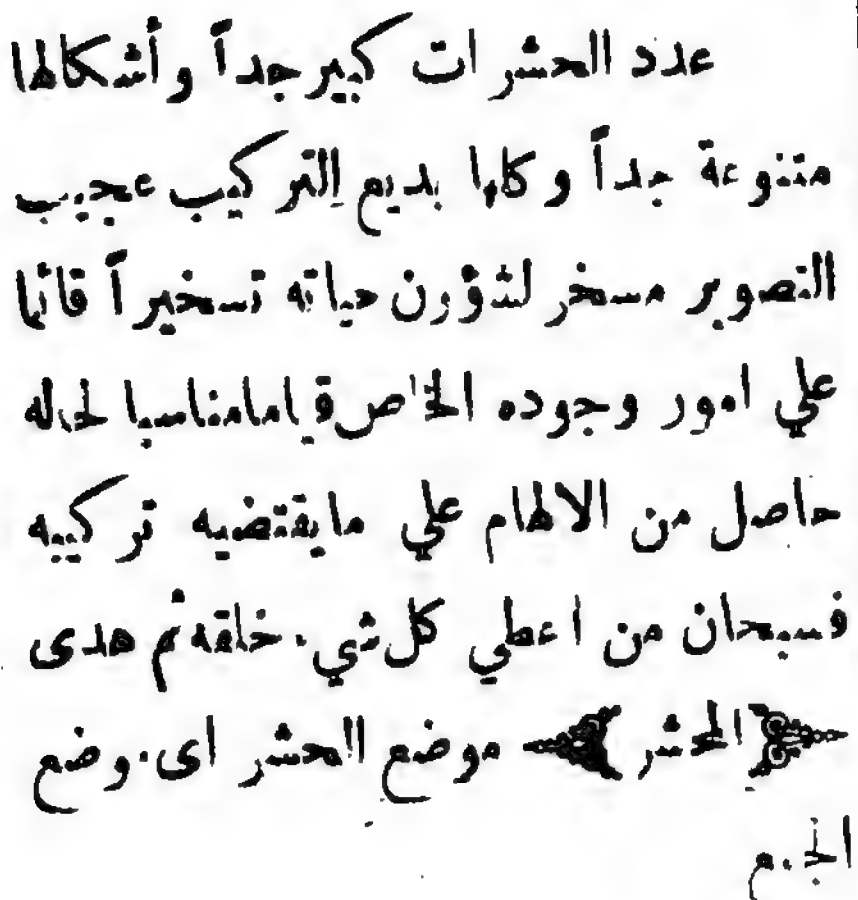 عدد الحشرات كبير جداً وأشكالها
متنوعة جداً وكلها بديع التركيب عجيب
التصوير مسخر لشؤون حياته تسخيراً قائما
علي امور وجوده الخاص قياما مناسبا لحاله
حاصل من الالهام علي مايقتضيه تركيبه
فسبحان من اعطي كل شيء خلقه ثم هدى
﴿المحشر﴾ موضع الحشر اى موضع
الجمع